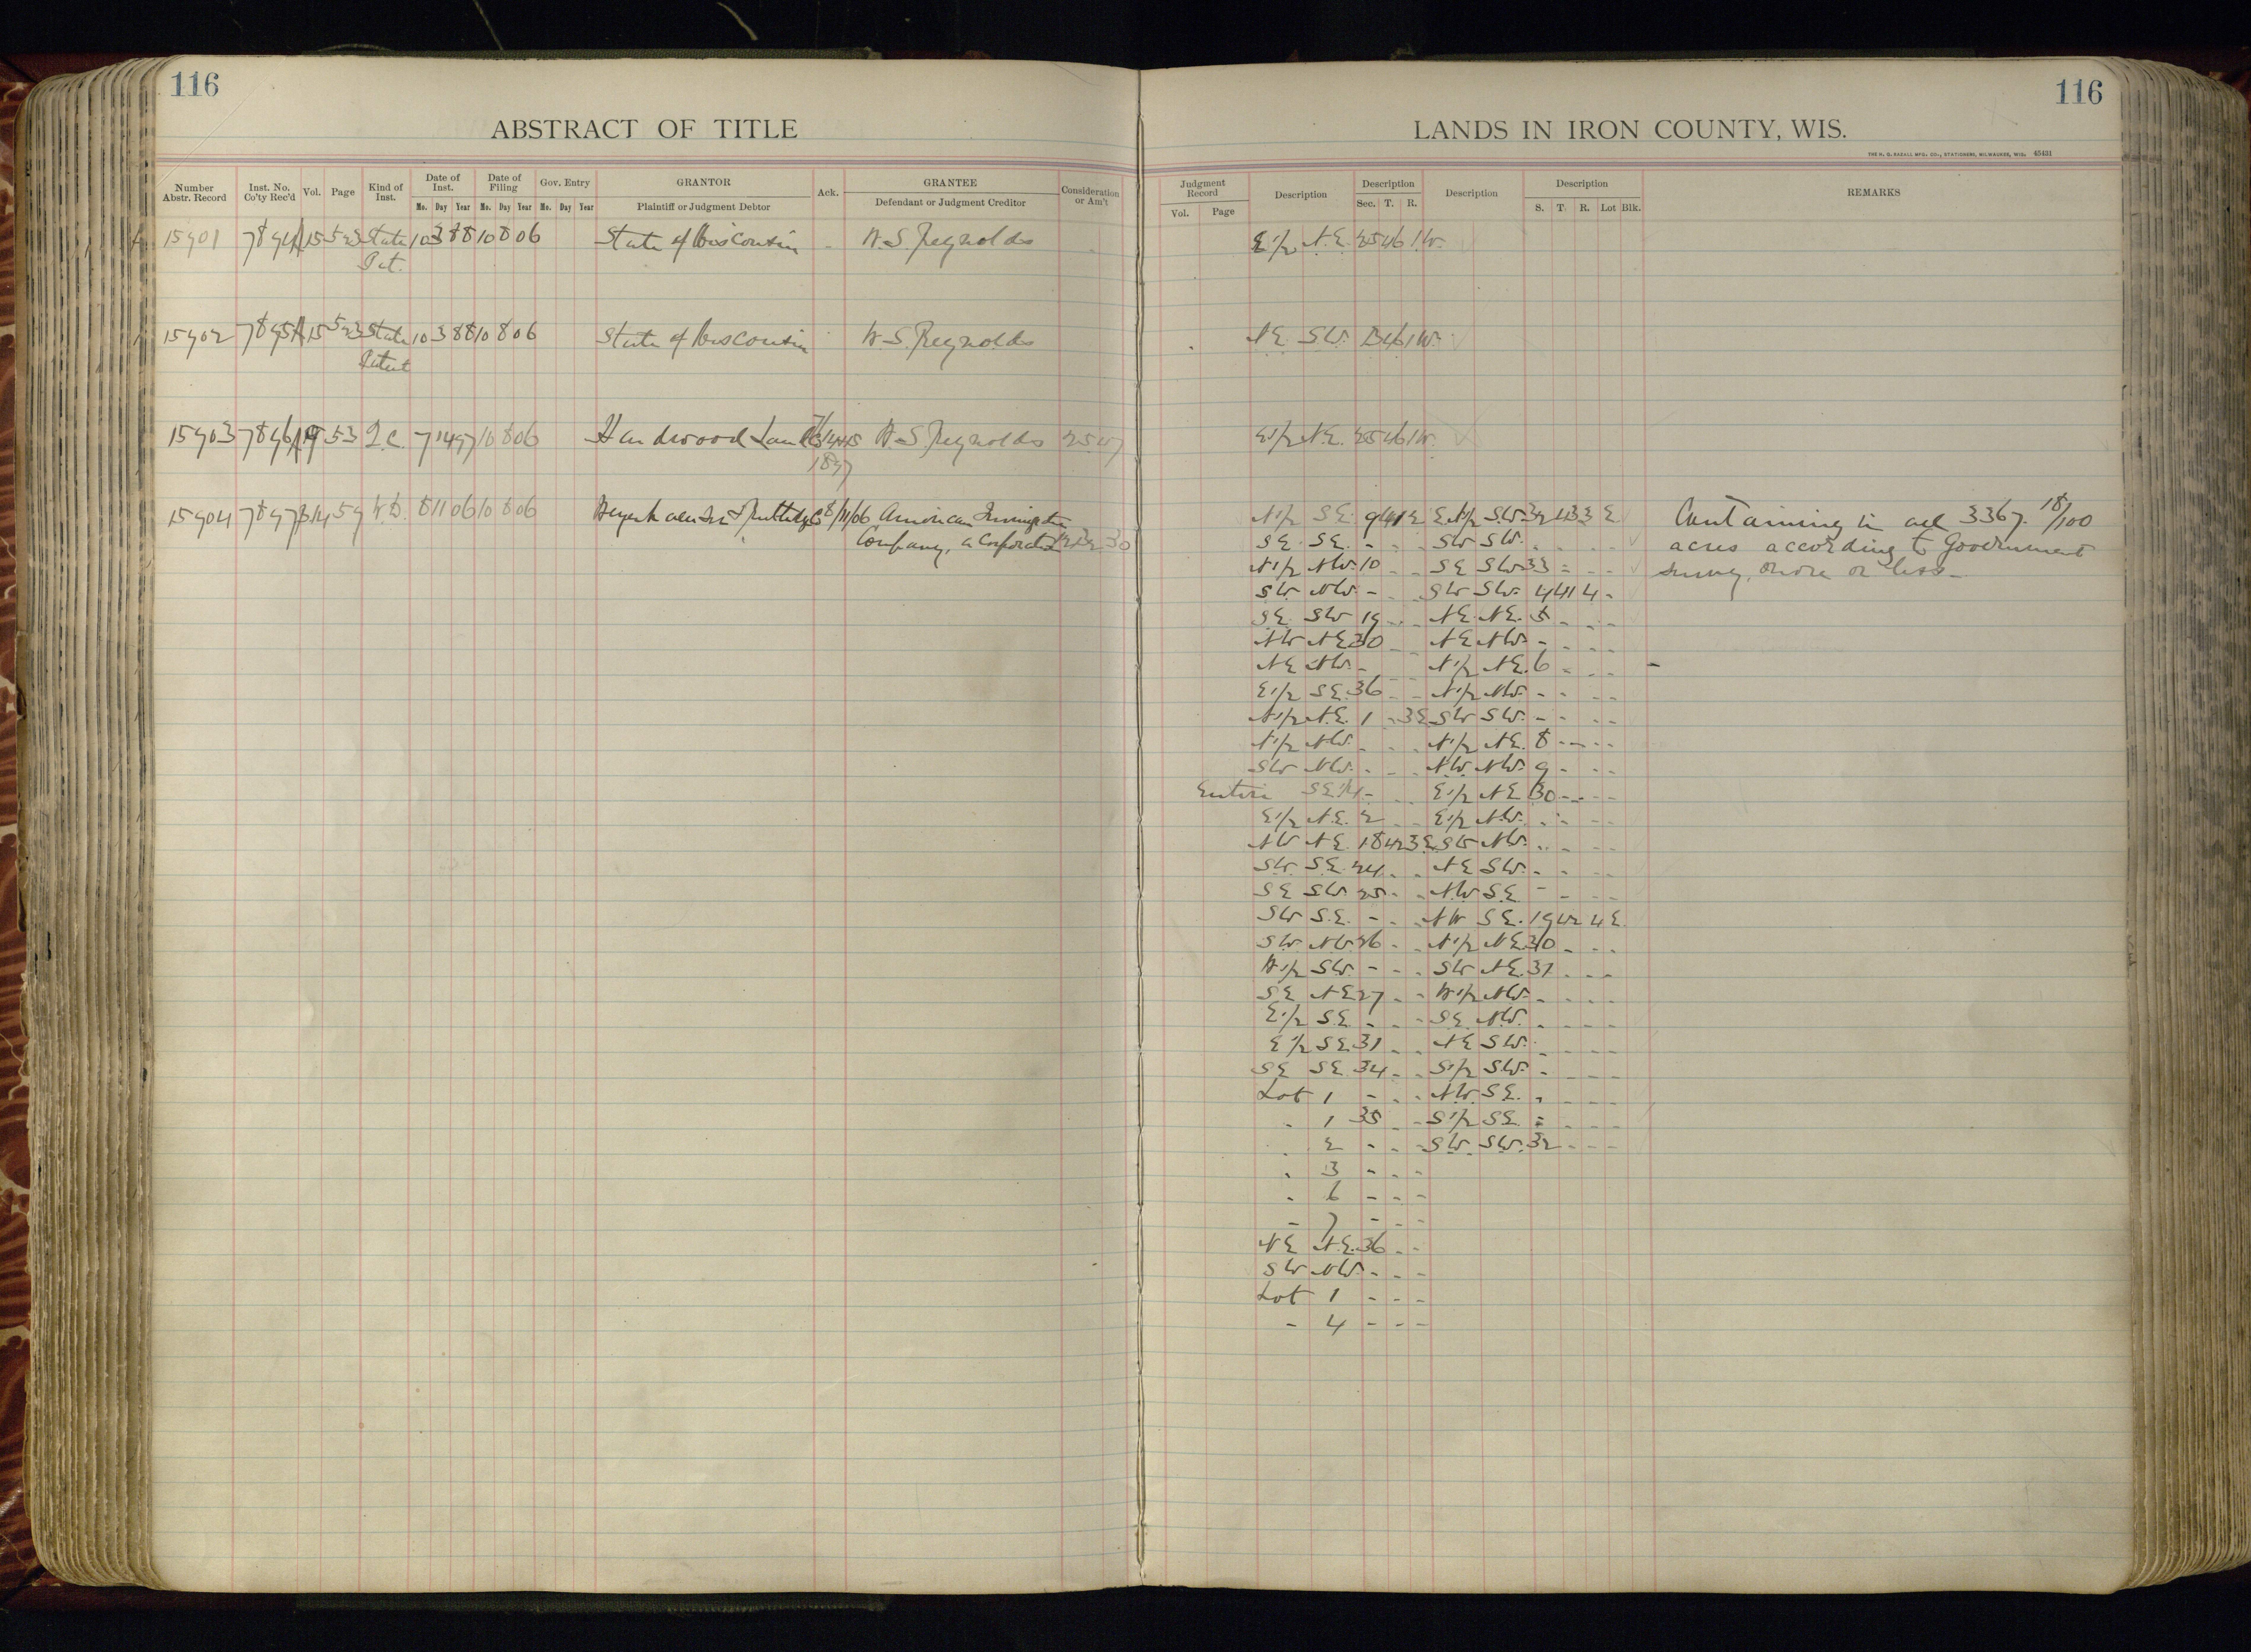 116
116
ABSTRACT OF TITLE
LANDS IN IRON COUNTY, WIS.
THE H. G. RAZALL MFG. CO., STATIONERS, MILWAUKEE, WIS. 45431
Number Abstr. Record
Inst. No. Co'ty Rec'd
Vol.
Page
Kind of Inst.
Date of Inst.
Date of Filing
Gov. Entry
GRANTOR
Ack.
GRANTEE
Consideration or Am't
Mo. Day Year Mo. Day Year Mo. Day Year
Plaintiff or Judgment Debtor
Defendant or Judgment Creditor
Judgment Record
Vol. Page
Description
Description
Sec. T. R.
Description
Description
S. T. R. Lot Blk.
REMARKS
15901 State 10 3 88 10 8 06 State of Wisconsin W.S. Reynolds E1/2 N.E. 25 46 1W.
Pat.
15902 State 10 3 88 10 8 06 State of Wisconsin W.S. Reynolds NE SW. 46 1W.
Patent
15903 53 Q.C. 7 14 97 10 8 06 Hardwood Land Co W.S. Reynolds E1/2 N.E. 25 46 1W.
1897
15904 W.D. 8 11 06 10 8 06 8/11/06 American Immigration N1/2 SE. 9 41 2 E N1/2 SW. 32 43 3 E Containing in all 3367. 18/100
Company, a Corporation SE SE. - - - SW SW. - - - acres according to Government
N1/2 NW. 10 - - SE SW 33 - - - survey, more or less -
SW NW. - - - SW SW. 4 41 4 -
SE SW 19 - - NE. NE. 5 - - -
NW NE 30 - - NE NW. - - - -
NE NW. - - - N1/2 NE. 6 - - -
E1/2 SE. 36 - - N1/2 NW. - - - -
N1/2 N.E. 1 - 3E SW SW. - - - -
N1/2 NW. - - - N1/2 NE. 8 - - - -
SW NW. - - - N.W. NW. 9 - - -
Entire SE1/4 - - - E1/2 NE 30 - - - -
E1/2 N.E. 2 - - E1/2 NW. - - - -
NW NE. 18 42 3E SW NW. - - - -
SW. SE. 24 - - NE SW. - - - -
SE SW. 25 - - NW. SE - - - -
SW S.E. - - - NW SE. 19 42 4 E.
SW NW. 26 - - N1/2 NE. 30 - - -
W1/2 SW. - - - SW NE. 31 - - -
SE NE. 27 - - W1/2 NW. - - - -
E1/2 SE. - - - SE. NW. - - - -
E1/2 SE. 31 - - NE SW. - - - -
SE SE. 34 - - S1/2 SW. - - - -
Lot 1 - - - NW. SE. - - - -
- 1 35 - - S1/2 SE. - - - -
- 2 - - - SW. SW. 32 - - -
- 3 - - -
- 6 - - -
- 7 - - -
NE N.E. 36 - -
SW NW. - - -
Lot 1 - - -
- 4 - - -